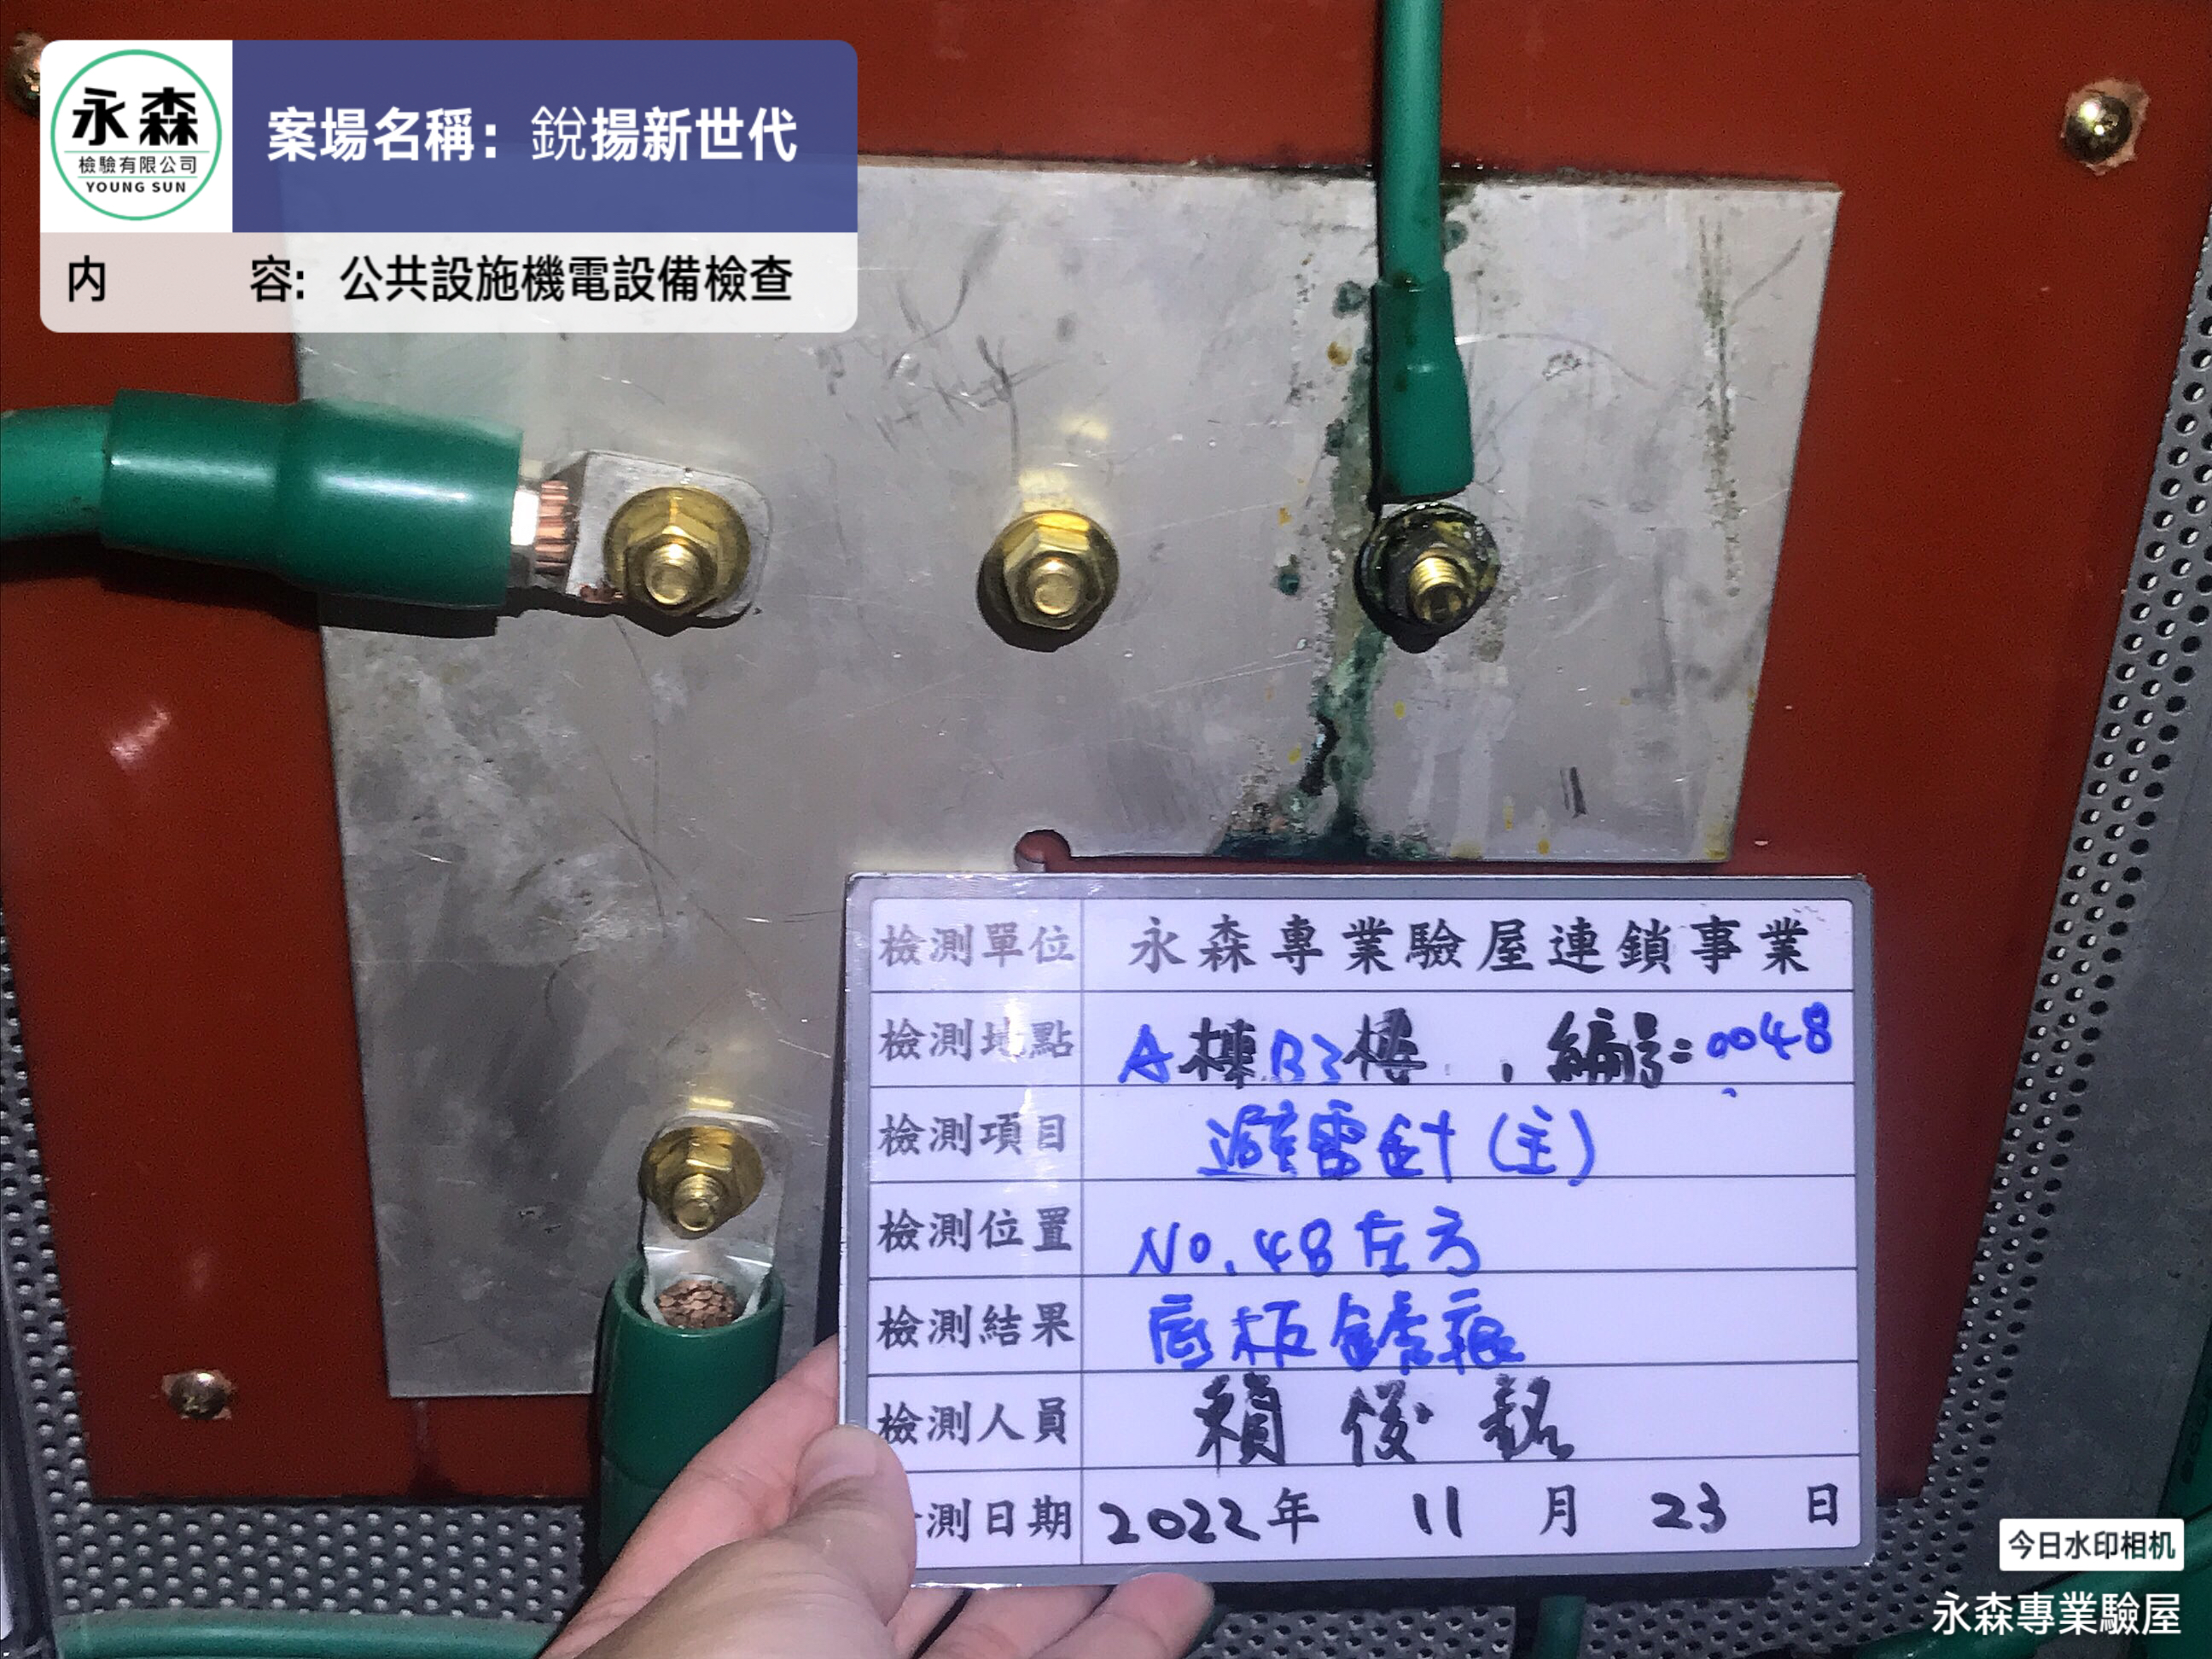 永森
檢驗有限公司
YOUNG SUN
案場名稱：銳揚新世代
內 容: 公共設施機電設備檢查
檢測單位 永森專業驗屋連鎖事業
檢測地點 A棟B3樓 , 編号:0048
檢測項目 避雷針(主)
檢測位置 No.48左方
檢測結果 底板銹痕
檢測人員 賴俊銘
測日期 2022年 11 月 23 日
今日水印相机
永森專業驗屋